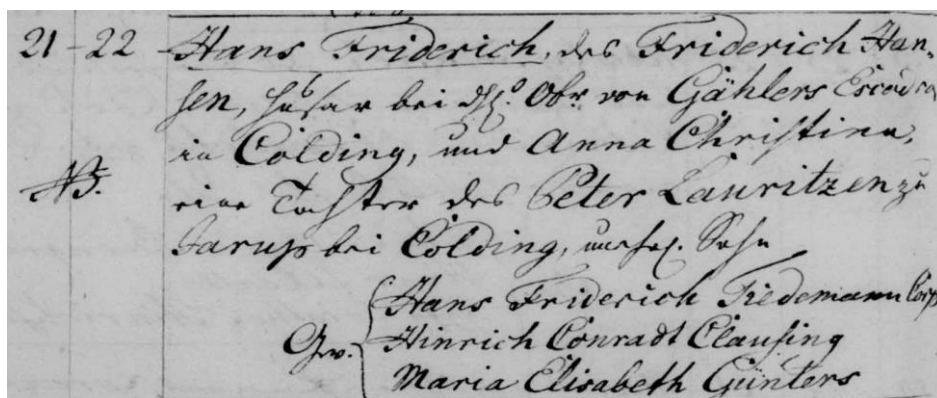 21-22 Hans Friderich, des Friderich Han-
sen, Husar bei Obr von Gählers Escadro
in Colding, und Anna Christina,
NB. eine Tochter des Peter Lauritzen zu
Jarup bei Colding, unehel. Sohn
Hans Friderich Tiedemann Corp
Gev. Hinrich Conradt Clausing
Maria Elisabeth Günters